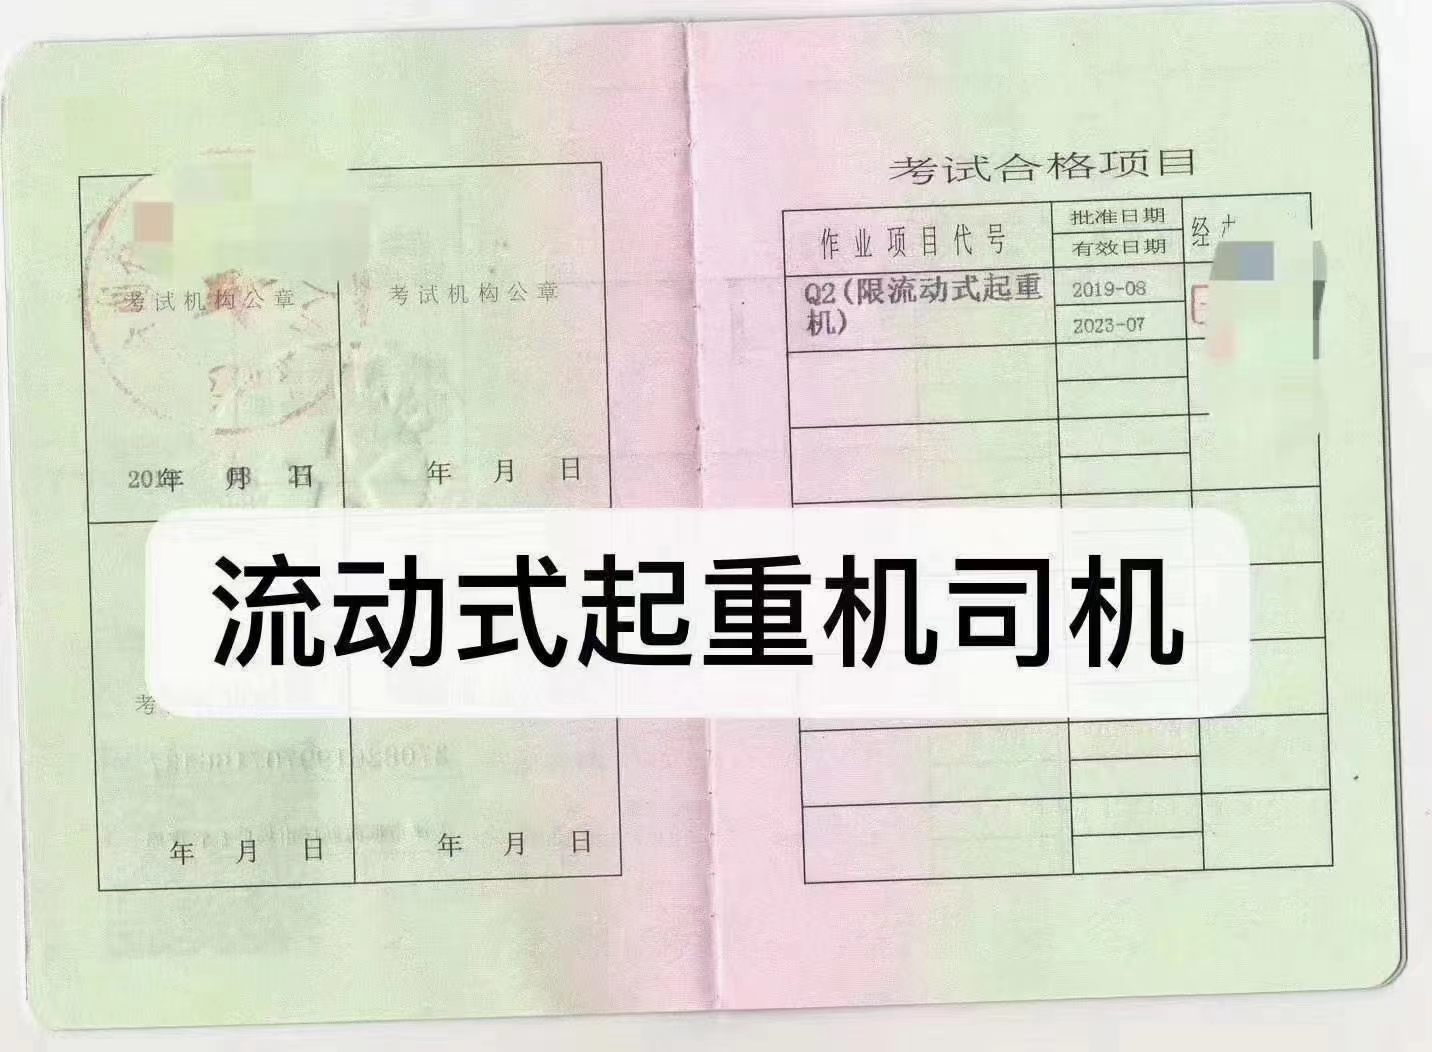 考试机构公章
考试机构公章
年 月 日
年 月 日
考
年 月 日
年 月 日
考试合格项目
作业项目代号
批准日期
有效日期
经
Q2(限流动式起重
机)
2019-08
2023-07
流动式起重机司机